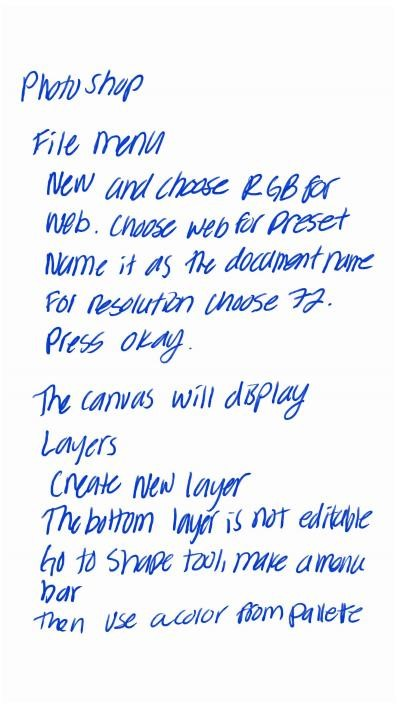 Photoshop
File menu
New and choose RGB for
web. Choose web for Preset
Name it as the document name
For resolution choose 72.
Press okay.
The canvas will display
Layers
Create new layer
The bottom layer is not editable
Go to Shape tool, make a menu
bar
then use a color from pallete